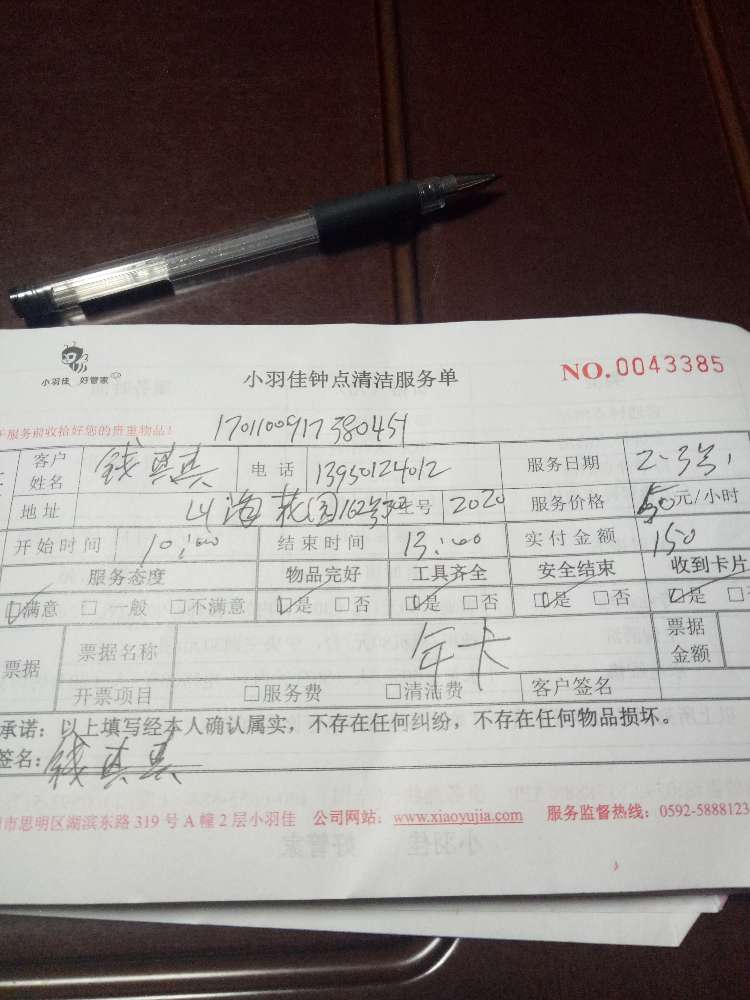 小羽佳 好管家
小羽佳钟点清洁服务单
NO.0043385
服务前收拾好您的贵重物品!
客户姓名 钱 电话 13950124012 服务日期 2-3号
地址 山海花园162号 号 2020 服务价格 50元/小时
开始时间 10:00 结束时间 13:00 实付金额 150
服务态度 物品完好 工具齐全 安全结束 收到卡片
☑满意 □一般 □不满意 ☑是 □否 ☑是 □否 ☑是 □否 ☑是 □
票据 票据名称 年卡 票据金额
开票项目 □服务费 □清洁费 客户签名
承诺:以上填写经本人确认属实,不存在任何纠纷,不存在任何物品损坏。
签名:钱
市思明区湖滨东路 319 号 A 幢 2 层小羽佳 公司网站:www.xiaoyujia.com 服务监督热线:0592-5888123